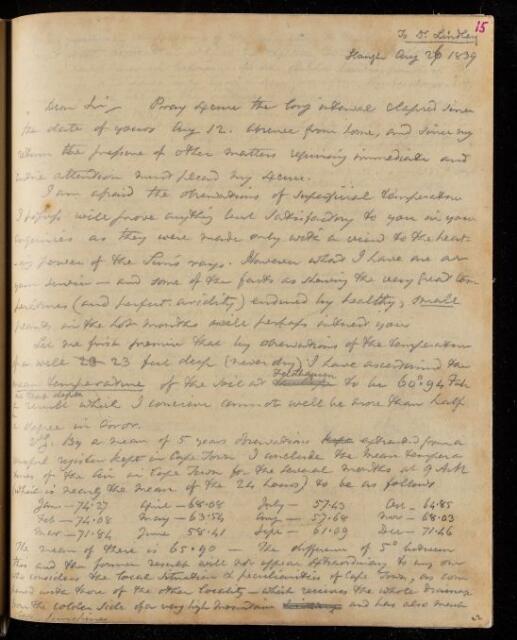 15
To Dr. Lindley
Slough Aug 26 1839
Dear Sir, Pray excuse the long interval elapsed since
the date of yours Aug 12. Absence from home, and since my
return the pressure of other matters requiring immediate and
entire attention must plead my excuse.
I am afraid the observations of superficial temperature
I possess will prove anything but satisfactory to you in your
inquiries as they were made only with a view to the heat-
-ing power of the Sun's rays. However what I have are at
your service - and some of the facts as shewing the very great tem-
peratures (and perfect aridity) endured by healthy, small
plants in the hot months will perhaps interest you
Let me first premise that by observations of the temperature
of a well 23 feet deep (never dry) I have ascertained the
mean temperature of the soil at Feldhausen to be 60°.94 Fah
at that depth
a result which I conceive cannot well be more than half
a degree in error.
By a mean of 5 years observations extracted from a
register kept in Cape Town I conclude the mean tempera-
tures of the air in Cape Town for the several months at 9 AM
(which is nearly the mean of the 24 hours) to be as follows
Jan - 74.27 April - 68.08 July - 57.43 Oct - 64.85
Feb - 74.08 May - 63.54 Aug - 57.68 Nov - 68.03
Mar - 71.84 June 58.41 Sept - 61.09 Dec - 71.46
The mean of these is 65°.90 - The difference of 5° between
this and the former result will not appear extraordinary to any one
who considers the local situation & peculiarities of Cape Town, as com
pared with those of the other locality - which receives the whole drainage
from the colder side of a very high mountain and has also much